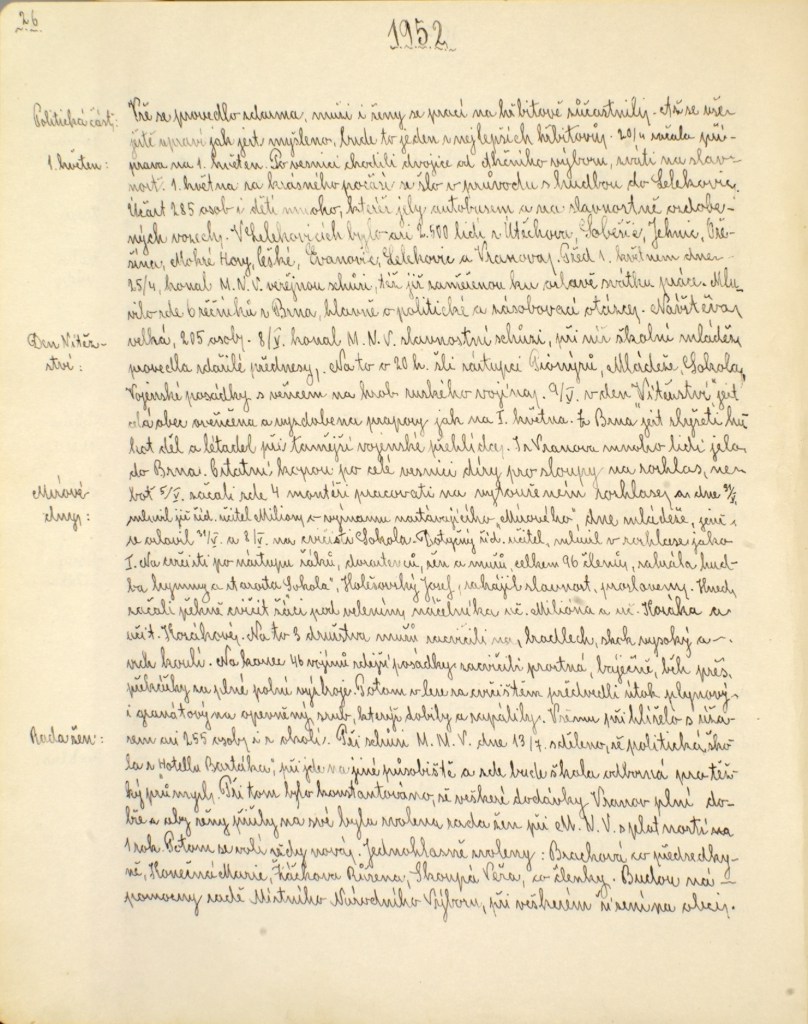 26
1952
Politická část:
Vše se provedlo zdarma, muži i ženy se prací na hřbitově súčastnily. Až se vše
ještě upraví jak jest myšleno, bude to jeden z nejlepších hřbitovů. 20/4 začala pří-
1. květen:
prava na 1. květen. Po vesnici chodili dvojice od akčního výboru, zváti na slav-
nost. 1. května za krásného počasí se šlo v průvodu s hudbou do Lelekovic.
Účast 285 osob i dětí mnoho, kteří jely autobusem a na slavnostně ozdobe-
ných vozech. V Lelekovicích bylo asi 2.500 lidí z Útěchova, Soběšic, Jehnic, Oře-
šína, Mokré Hory, České, Ivanovic, Lelekovic a Vranova. Před 1. květnem dne
25/4, konal M.N.V. veřejnou schůzi, též již zaměřenou ku oslavě svátku práce. Mlu-
vilo zde 6 řečníků z Brna, hlavně o politické a zásobovací otázce. Návštěva
Den Vítěz-
ství:
velká, 205 osob. 8/V. konal M.N.V. slavnostní schůzi, při níž školní mládež
provedla zdařilé přednesy. Na to v 20 h. šli zástupci Pionýrů, Mládeže, Sokola,
Vojenské posádky s věncem na hrob ruského vojína. 9/V. v den "Vítězství" jest
celá obec ověnčena a vyzdobena prapory jak na I. května. Z Brna jest slyšeti hu-
kot děl a letadel při tamější vojenské přehlídce. I z Vranova mnoho lidí jelo
do Brna. Ostatní kopou po celé vesnici díry pro sloupy na rozhlas, ne-
Mírové
dny:
boť 5/V. začali zde 4 montéři pracovati na vytouženém rozhlase, a dne
mluvil již říd. učitel Milion o významu nastávajícího "Mírového" dne mládeže, jenž
se oslavil a na cvičišti Sokola. Dotyčný říd. učitel, mluvil v rozhlase jako
I. Na cvičišti po nástupu žáků, dorostenců, žen a mužů, celkem 96 členů, zahrála hud-
ba hymny a starosta "Sokola", Holešovský Josef, zahájil slavnost, proslovem. Hned,
začali pěkně cvičit žáci pod velením náčelníka uč. Milióna a uč. Horáka a
učit. Horákové. Na to 3 družstva mužů zacvičili na hradlech, skok vysoký a
vrh koulí. Na konec 46 vojínů zdejší posádky zacvičili prostná, báječně, běh přes
překážky za plné polní výzbroje. Potom v lese za cvičištěm předvedli útok plynový
i granátový na opevněný srub, který dobyli a zapálily. Všemu přihlíželo s úža-
Rada žen:
sem asi 255 osob i z okolí. Při schůzi M.N.V. dne 13/7. sděleno, že politická ško-
la z "Hotelu Bartáka", při jde na jiné působiště a zde bude škola odborná pro těž-
ký průmysl. Při tom bylo konstantováno, že veškeré dodávky Vranov plní do-
bře a aby ženy přišly na své byla zvolena rada žen při M.N.V. s platností na
1 rok. Potom se volí vždy nová. Jednohlasně zvoleny: Brachová co předsedky-
ně, Konečná Marie, Žáčkova Růžena, Skoupá Věra, co členky. Budou ná-
pomocny radě Místního Národního Výboru, při veškerém řízení na obci.